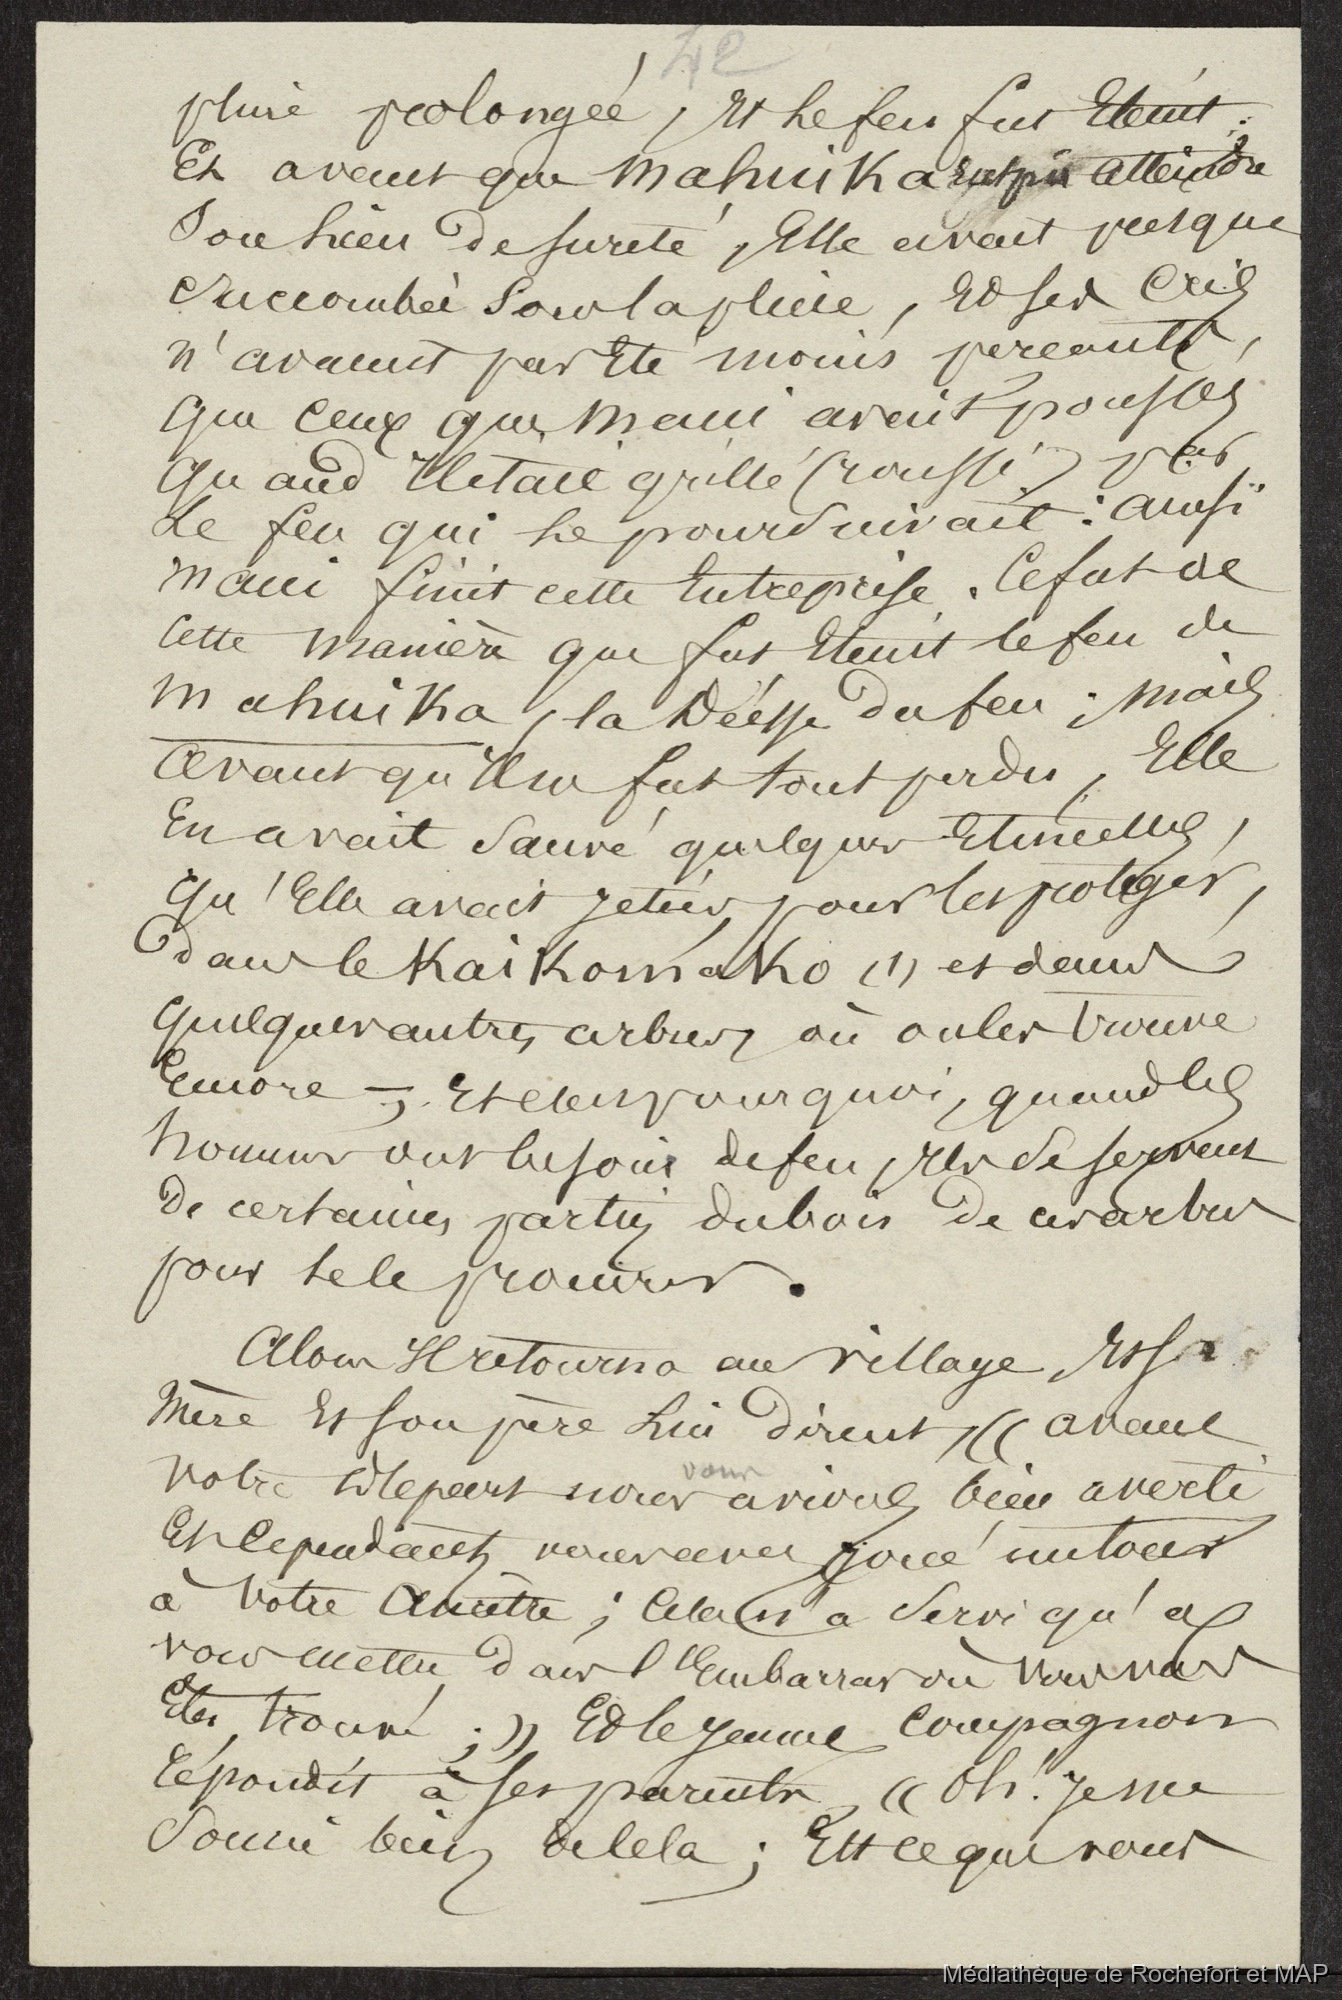 42
pluie prolongée, et le feu fut Eteint ;
Et avant que Mahuika eut pu atteindre
son lieu de sureté, Elle avait presque
succombée sous la pluie, Et ses cris
n'avaient pas Eté moins percants,
que ceux que Maui avait poussés
quand il etait grillé (roussi) par
le feu qui le poursuivait : ainsi
Maui finit cette Entreprise. Ce fut de
cette manière que fut Eteint le feu de
Mahuika, la Déesse du feu ; mais
avant qu'il ne fut tout perdu, Elle
En avait sauvé quelques Etincelles,
qu'Elle avait jetées, pour les protéger,
dans le Kaikomako (1) et dans
quelques autres arbres où on les trouve
Encore ; Et c'est pourquoi, quand les
hommes ont besoin de feu, ils se servent
de certaines parties du bois de ces arbres
pour se le procurer.
Alors il retourna au village, Et sa
Mère Et son père lui dirent, (( avant
votre départ nous vous avions bien averti
Et cependant vous avez joué un tour
à votre Ancêtre ; Cela n'a servi qu'à
vous mettre dans l'Embarras où vous vous
Etes trouvé ; )) Et le jeune compagnon
répondit à ses parents, (( Oh ! je me
soucie bien de cela ; Est ce que vous
Médiathèque de Rochefort et MAP